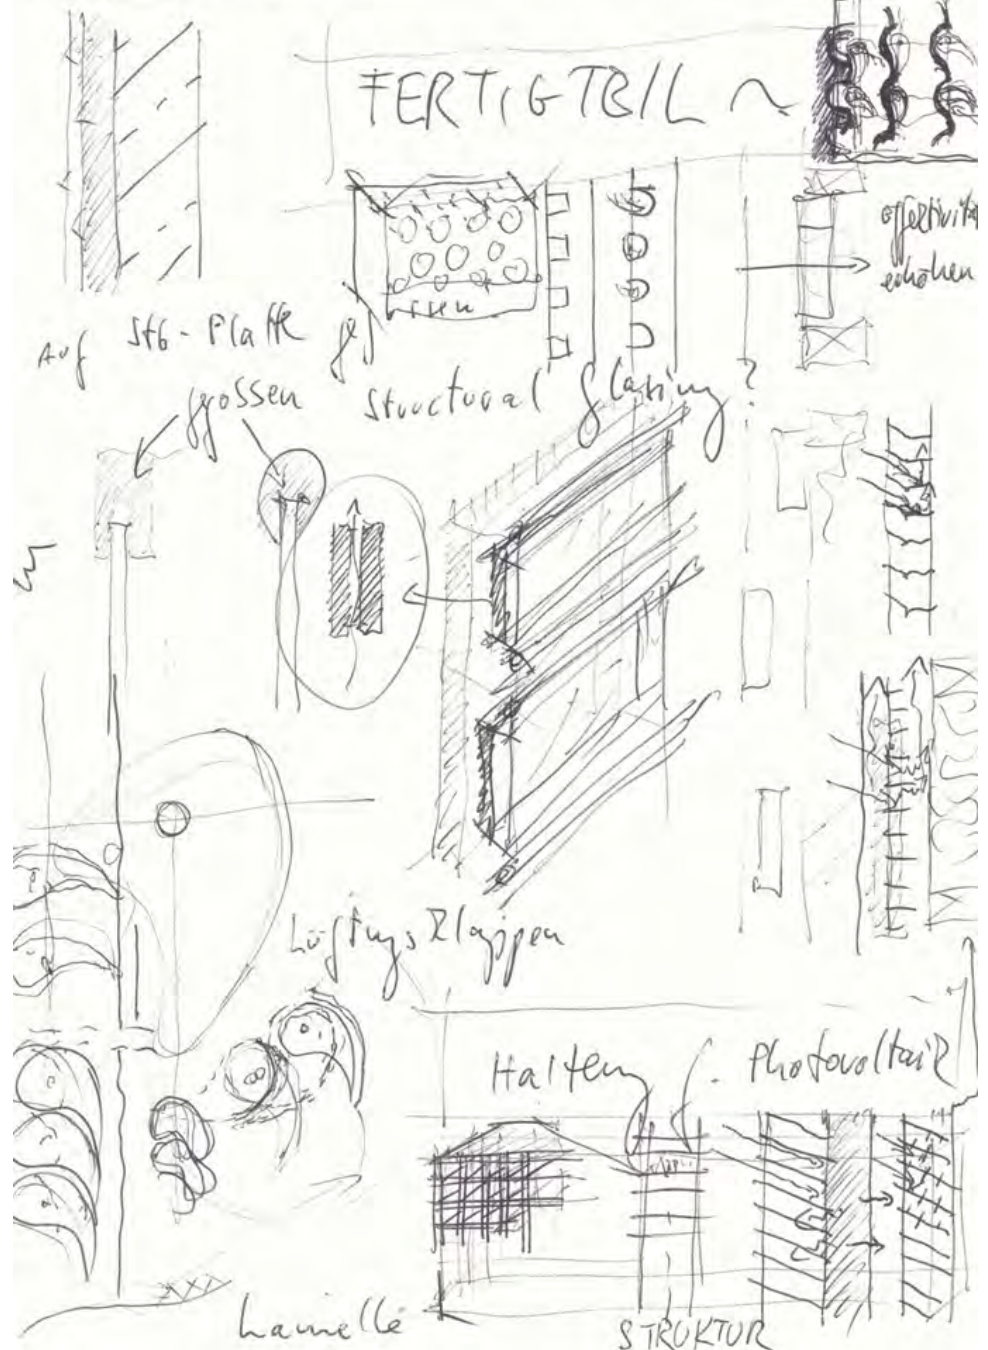 FERTIGTEIL
effektivität
erhöhen
Auf Stb-Platte
gossen
Structural glasing?
Lüftungsklappen
Halterung
Photovoltaik
Lamelle
STRUKTUR